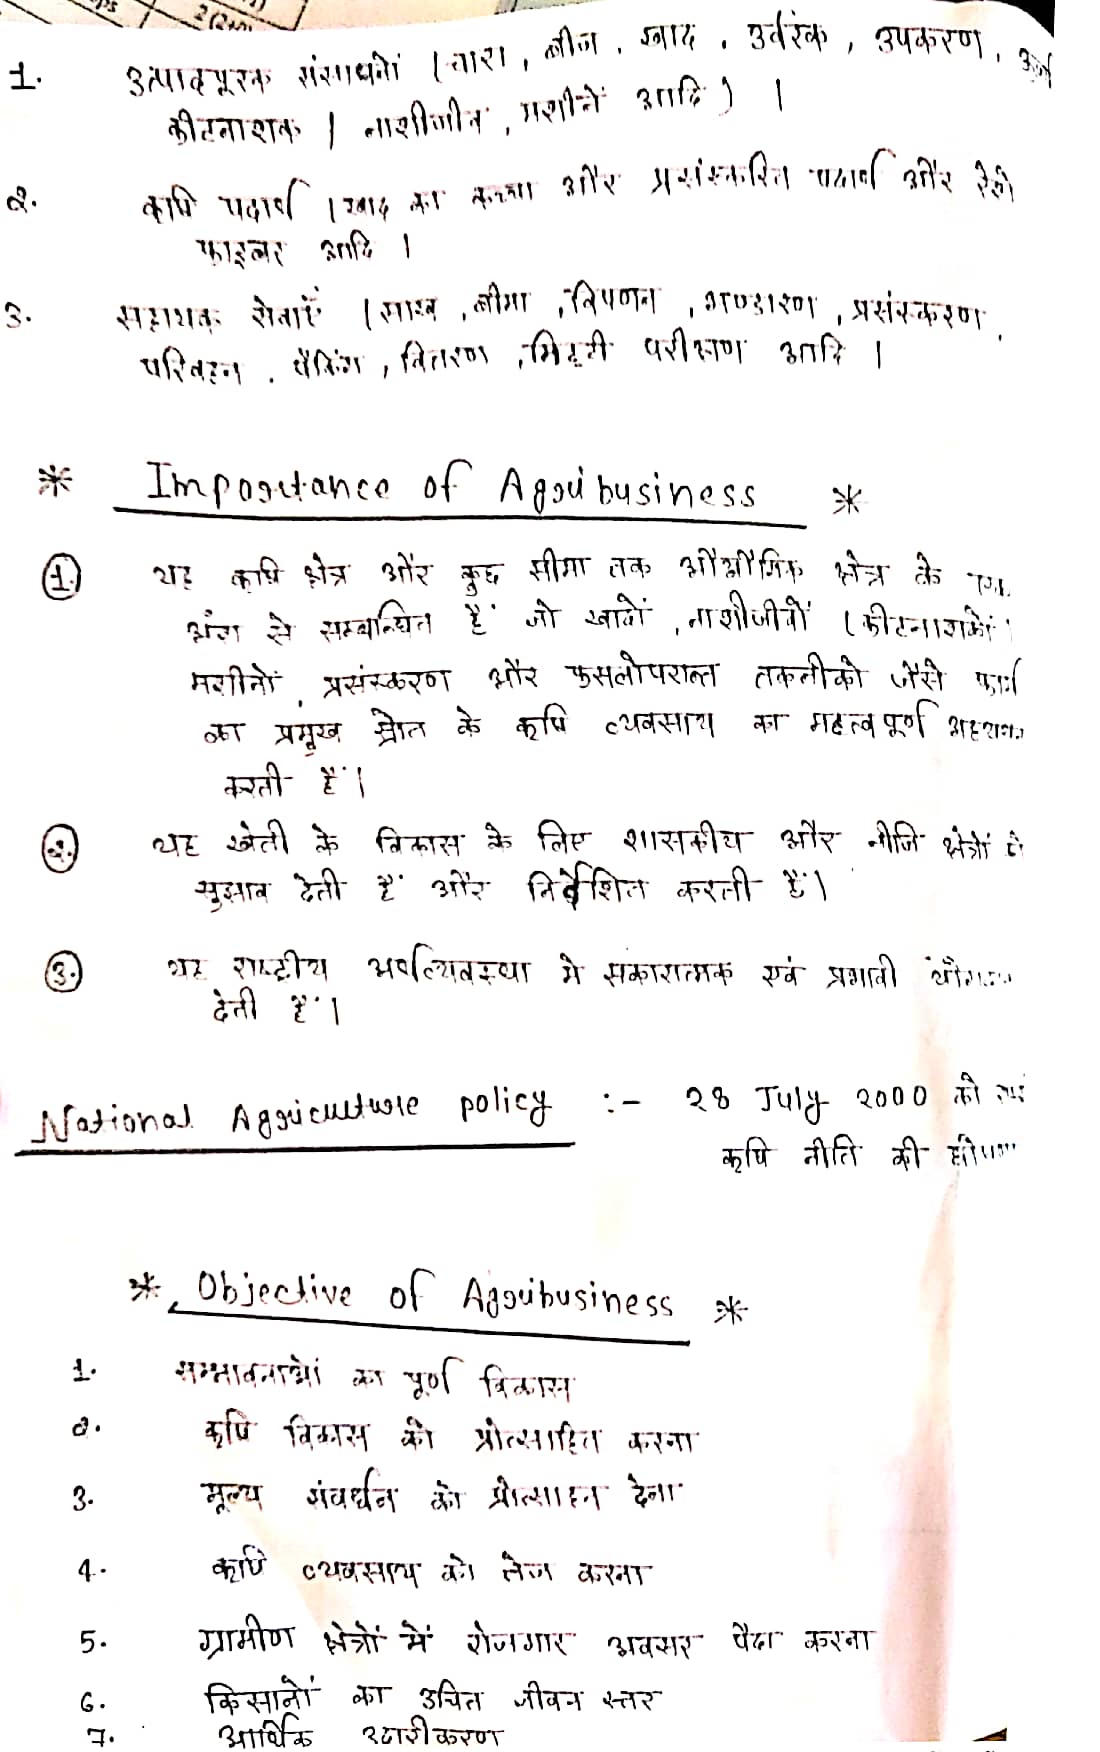 2 Rem
1. उत्पादपूरक संसाधनों (चारा, बीज, खाद, उर्वरक, उपकरण,
कीटनाशक / नाशीजीव, मशीनें आदि) ।
2. कृषि पदार्थ । खाद का कच्चा और प्रसंस्करित पदार्थ और रेशे
फाइबर आदि ।
3. सहायक सेवाएँ (साख, बीमा, विपणन, भण्डारण, प्रसंस्करण,
परिवहन, पैकिंग, वितरण, मिट्टी परीक्षण आदि ।
* Importance of Agribusiness *
1. यह कृषि क्षेत्र और कुछ सीमा तक औद्योगिक क्षेत्र के
अंग से सम्बन्धित हैं जो खादों, नाशीजीवों (कीटनाशकों)
मशीनों, प्रसंस्करण और फसलोपरान्त तकनीको जैसे कार्य
का प्रमुख स्रोत के कृषि व्यवसाय का महत्वपूर्ण
करती हैं।
2. यह खेती के विकास के लिए शासकीय और नीजि क्षेत्रों से
सुझाव देती हैं और निर्देशित करती हैं।
3. यह राष्ट्रीय अर्थव्यवस्था मे सकारात्मक एवं प्रभावी
देती हैं।
National Agriculture policy :- 28 July 2000 को नई
कृषि नीति की घोषणा
* Objective of Agribusiness *
1. सम्भावनाओं का पूर्ण विकास
2. कृषि विकास को प्रोत्साहित करना
3. मूल्य संवर्धन को प्रोत्साहन देना
4. कृषि व्यवसाय को तेज करना
5. ग्रामीण क्षेत्रों में रोजगार अवसर पैदा करना
6. किसानों का उचित जीवन स्तर
7. आर्थिक उदारीकरण